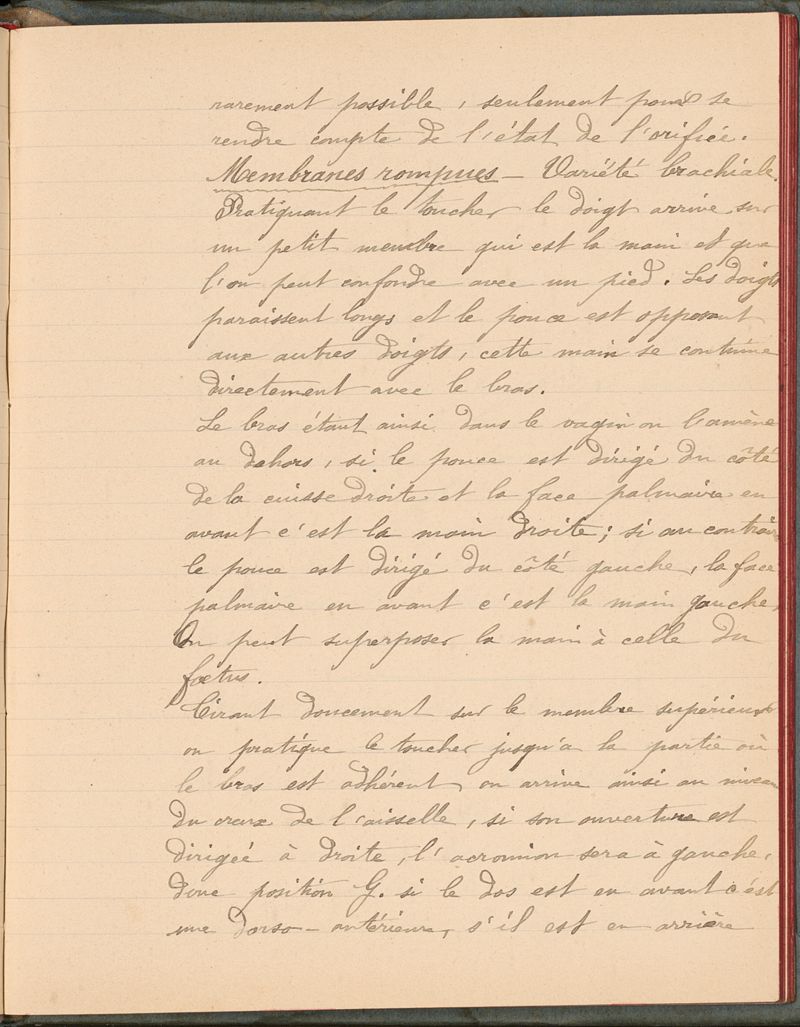 rarement possible, seulement pour se
rendre compte de l'état de l'orifice.
Membranes rompues – Variété brachiale.
Pratiquant le toucher le doigt arrive sur
un petit membre qui est la main et que
l'on peut confondre avec un pied. Les doigts
paraissent longs et le pouce est opposant
aux autres doigts, cette main se continue
directement avec le bras.
Le bras étant ainsi dans le vagin on l'amène
au dehors, si le pouce est dirigé du côté
de la cuisse droite et la face palmaire en
avant c'est la main droite; si au contraire
le pouce est dirigé du côté gauche, la face
palmaire en avant c'est la main gauche,
On peut superposer la main à celle du
fœtus.
Tirant doucement sur le membre supérieur
on pratique le toucher jusqu'à la partie où
le bras est adhérent, on arrive ainsi au niveau
du creux de l'aisselle, si son ouverture est
dirigée à droite, l'acromion sera à gauche,
donc position G. si le dos est en avant c'est
une dorso-antérieure, s'il est en arrière